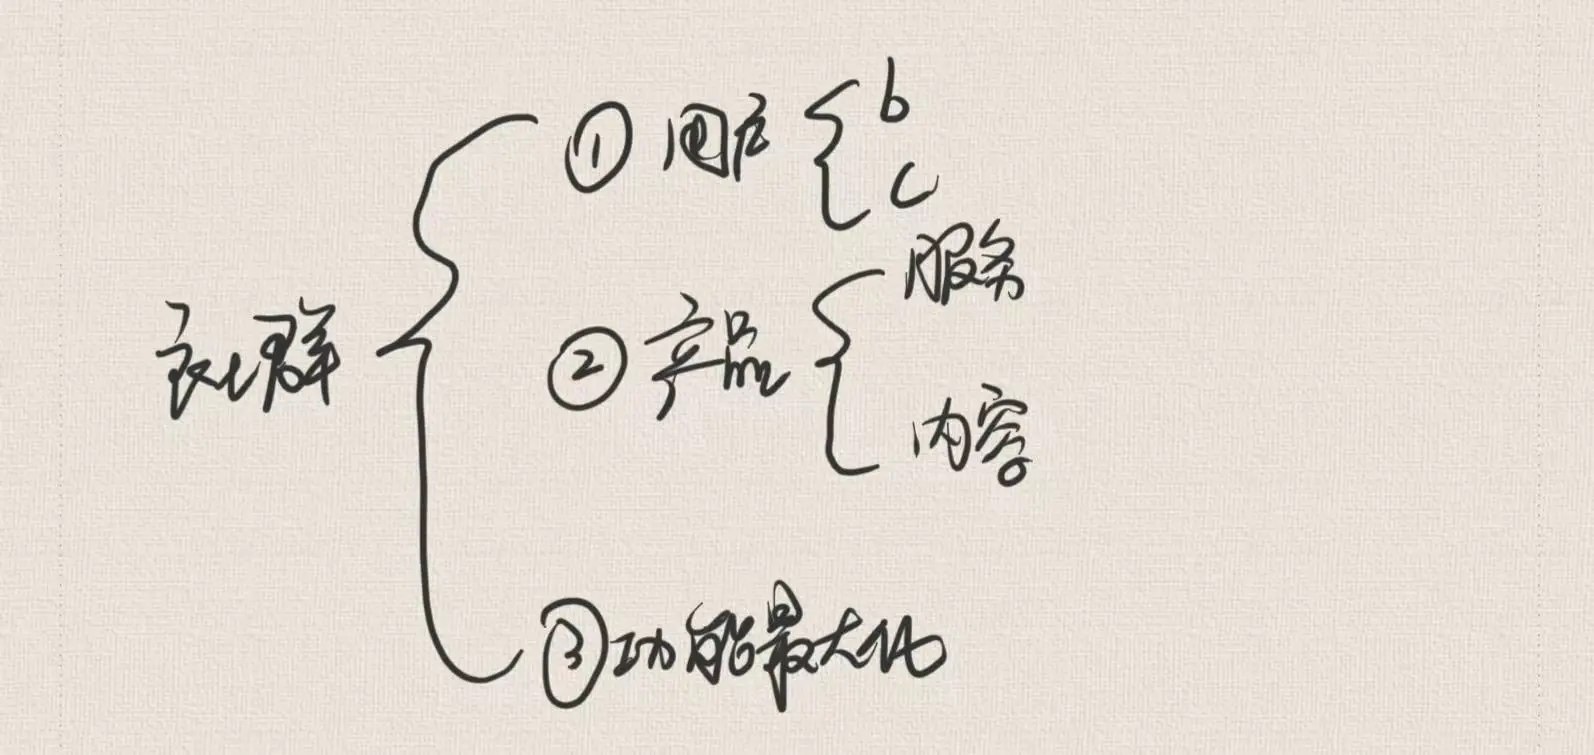 社群
① 用户
b
c
② 产品
服务
内容
③ 功能最大化